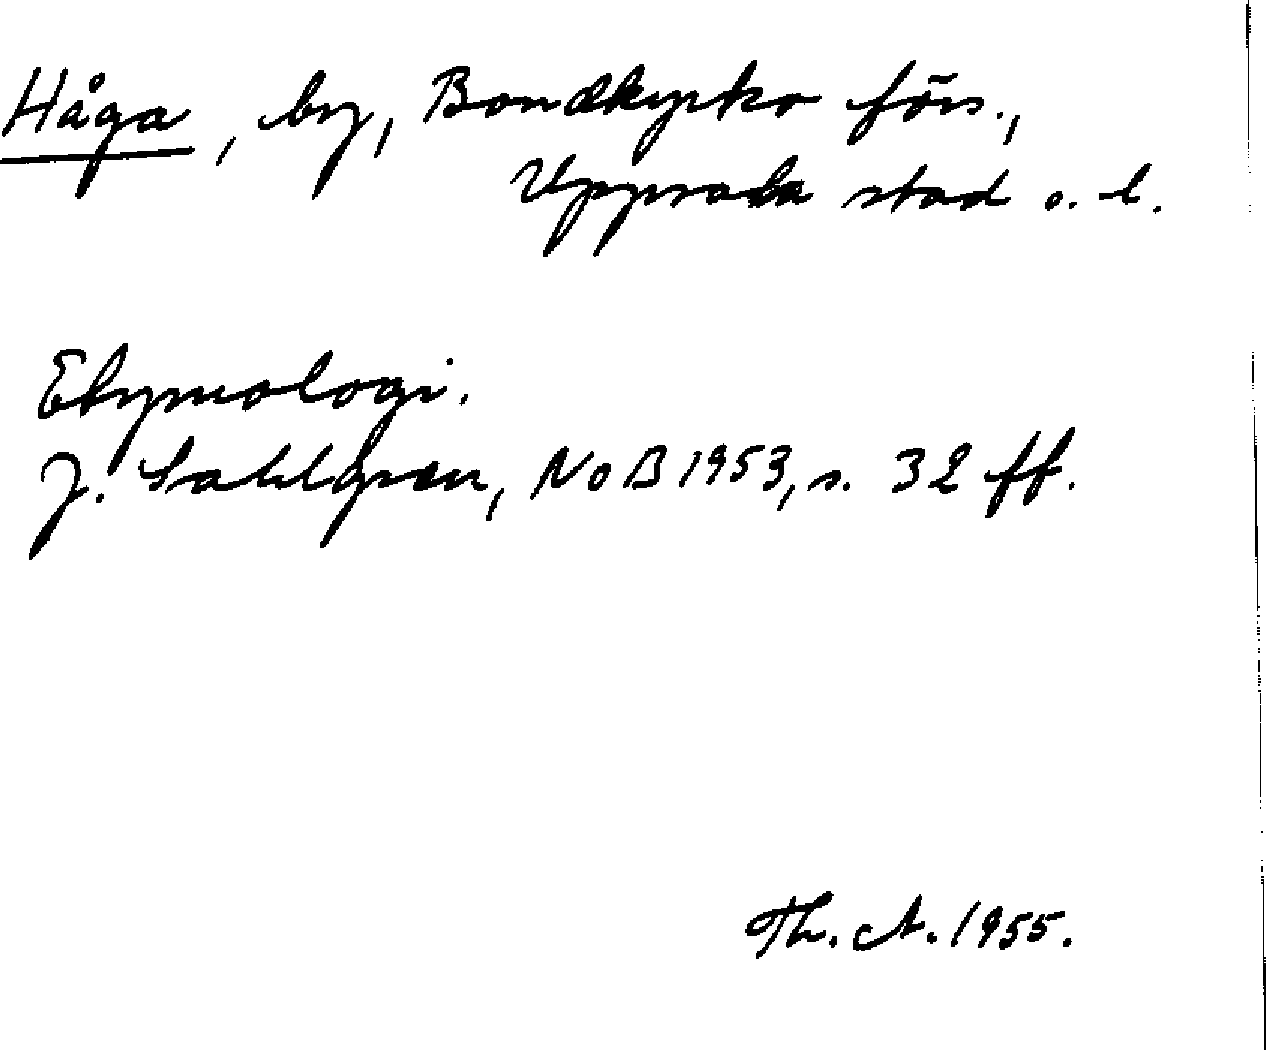 Håga, by, Bondkyrko förs.,
Uppsala stad o. l.
Etymologi.
J. Sahlgren, NoB 1953, s. 32 ff.
Th. A. 1955.